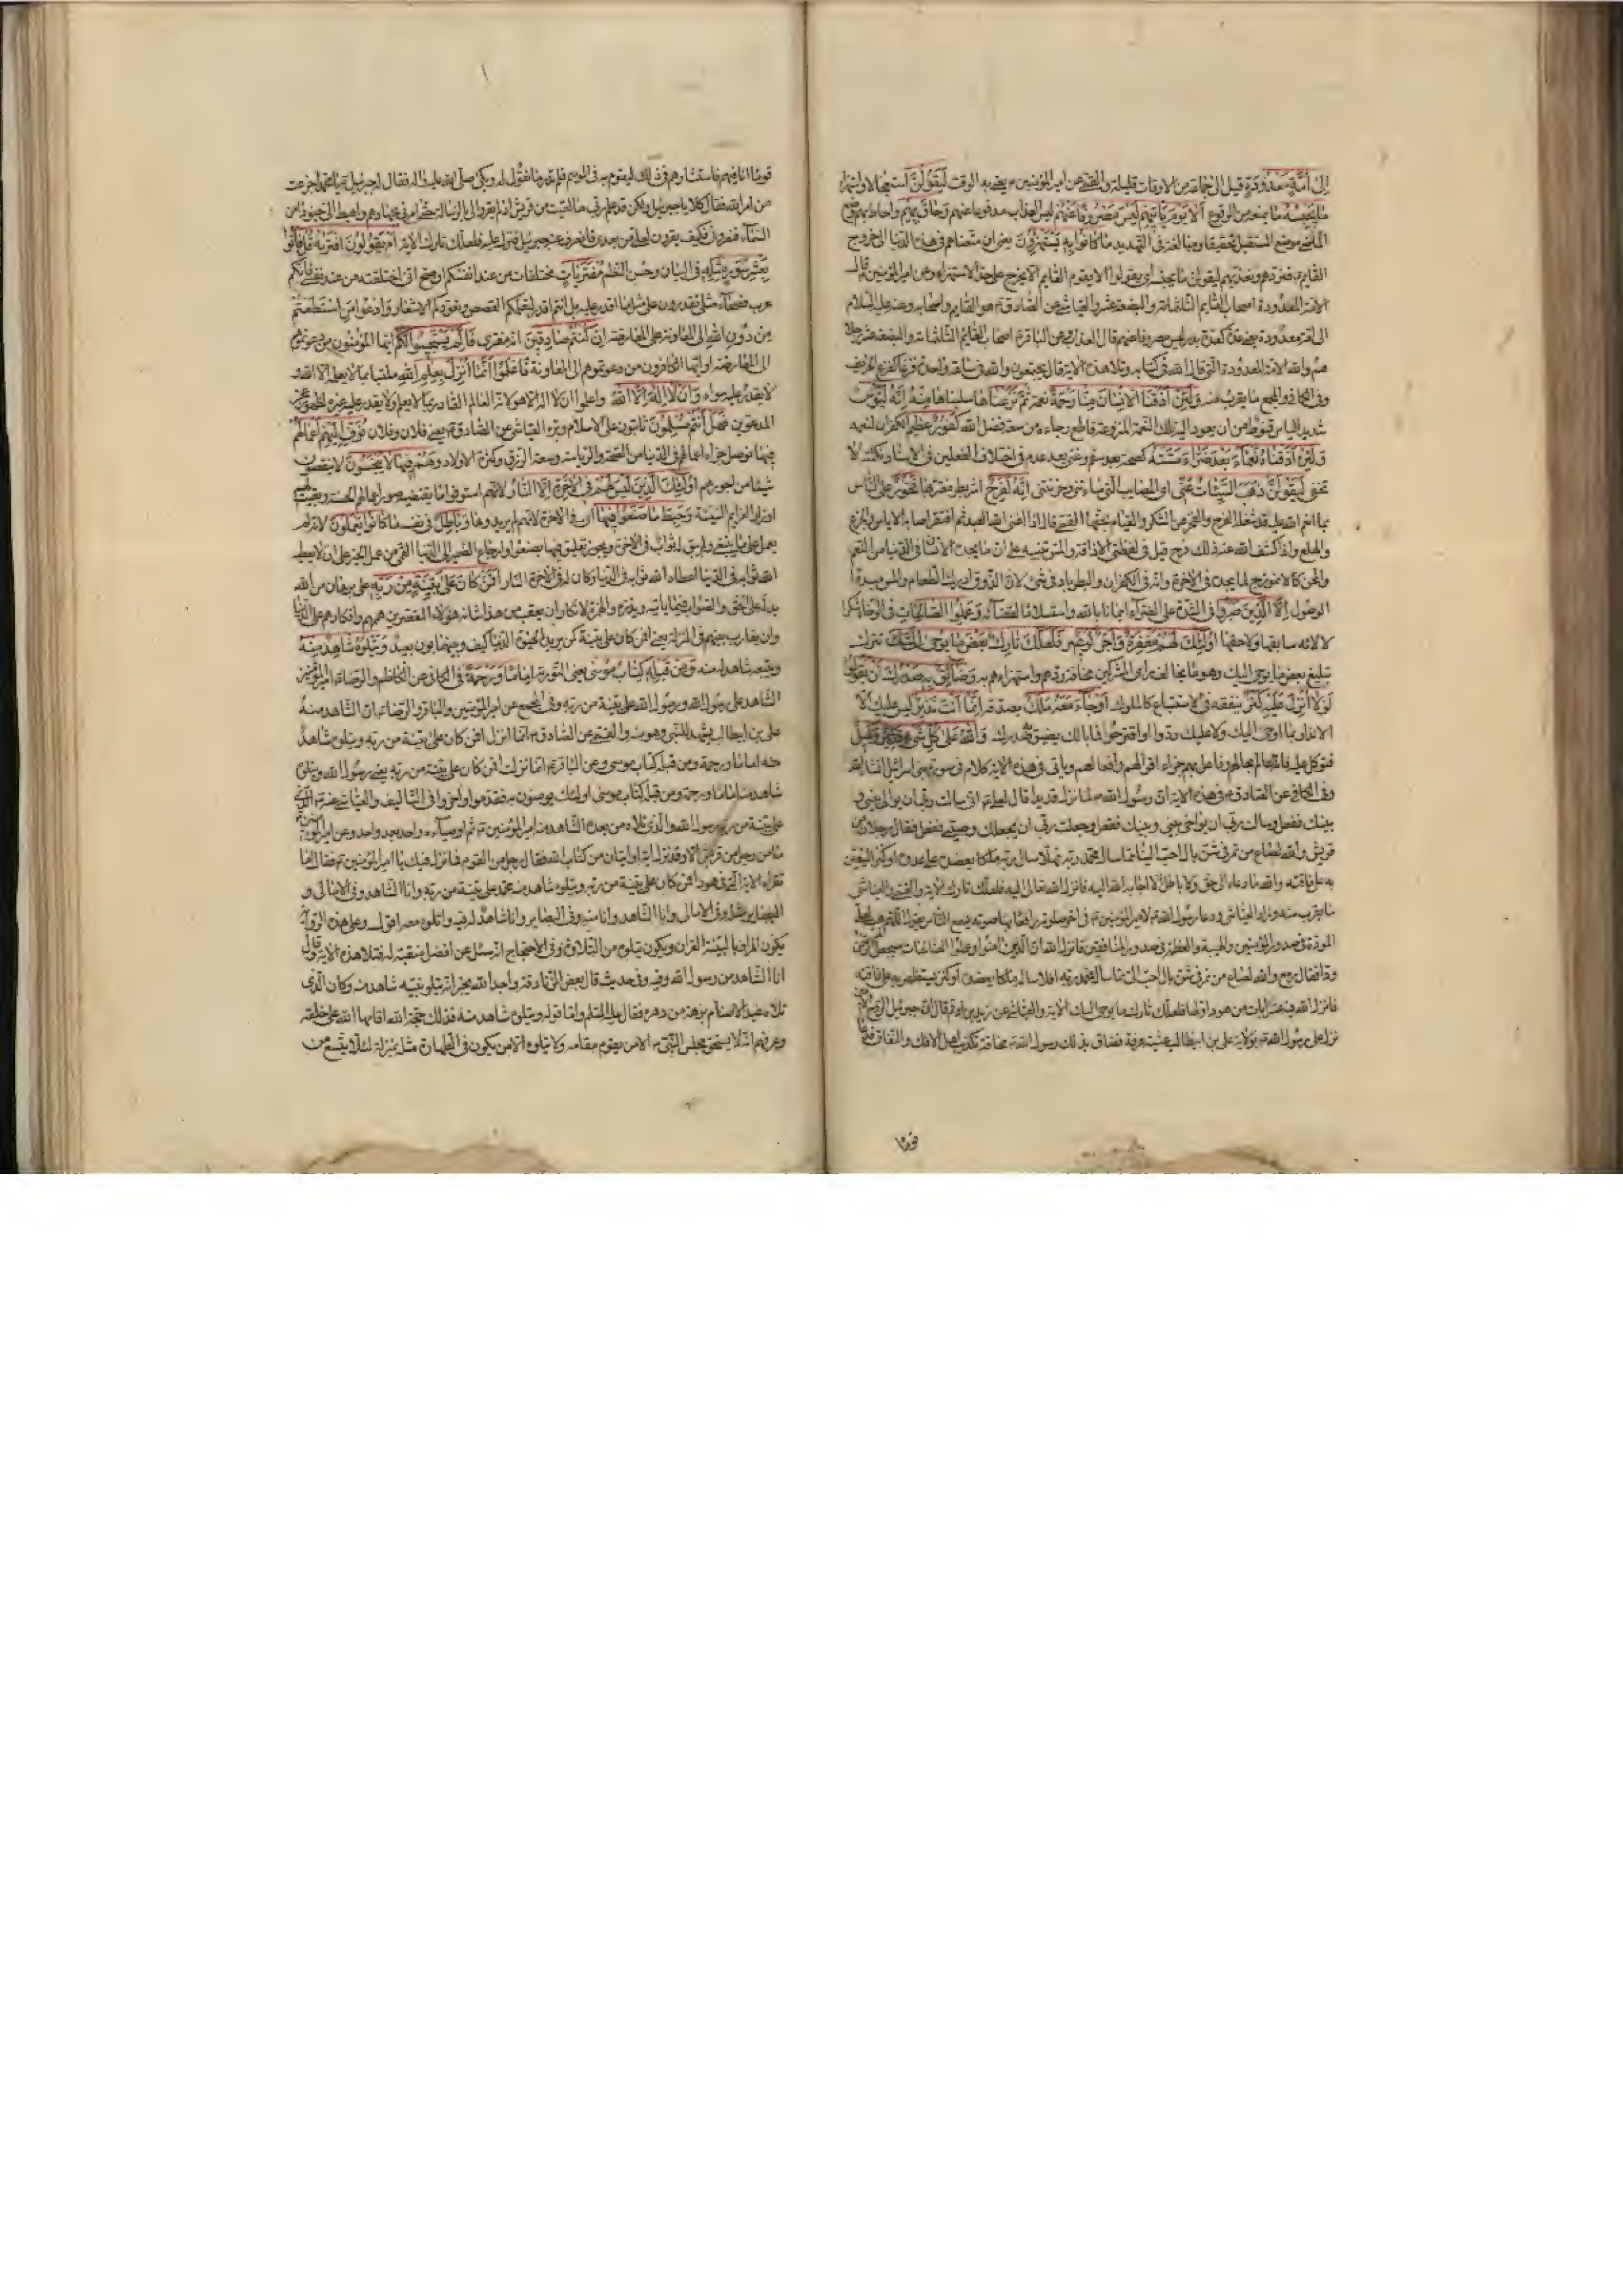 إلى أمة معدودة قيل إلى جماعة من الاوقات قليلة والقمي عن امير المؤمنين ع يعني به الوقت ليقولن استعجالا واستهزاء
ما يحبسه ما يمنعه من الوقوع ألا يوم يأتيهم ليس مصروفا عنهم ليس العذاب مدفوعا عنهم وحاق بهم واحاط بهم وضع
الماضي موضع المستقبل تحقيقا ومبالغة في التهديد ما كانوا به يستهزؤن يعني ان متعناهم في هذه الدنيا الى خروج
القايم فنردهم ونعذبهم ليقولن ما يحبسه اي يقولوا الا يقوم القايم الا يخرج على حد الاستهزاء وعن امير المؤمنين قال
الامة المعدودة اصحاب القايم الثلثمائة والبضعة عشر والعياشي عن الصادق ع هو القايم واصحابه وعنه عليه السلام
الى امة معدودة يعني عدة كعدة بدر ليس مصروفا عنهم قال العذاب وعن الباقر ع اصحاب القايم الثلثمائة والبضعة عشر رجلا
هم والله الامة المعدودة التي قال الله في كتابه وتلا هذه الاية قال يجتمعون والله في ساعة واحدة قزعا كقزع الخريف
وفي الكافي والمجمع ما يقرب منه ولئن أذقنا الإنسان منا رحمة نعمة ثم نزعناها سلبناها منه إنه ليؤس
شديد الياس قنوط من أن يعود اليه تلك النعمة المنزوعة قاطع رجاءه من سعة فضل الله كفور عظيم الكفران لنعمه
ولئن أذقناه نعماء بعد ضراء مسته كصحة بعد سقم وغنى بعد عدم في اختلاف الفعلين في الاسناد نكتة لا
تخفى ليقولن ذهب السيئات عني اي المصايب التي ساءتني وحزنتني إنه لفرح اشر بطر مغتر بها فخور على الناس
بما انعم الله عليه قد شغله الفرح والفخر عن الشكر والقيام بحقها القمي قال اذا اغنى الله العبد ثم افتقر اصابه الاياس والجزع
والهلع واذا كشف الله عنه ذلك فرح قيل في لفظتي الاذاقة والمس تنبيه على ان ما يجده الانسان في الدنيا من النعم
والمحن كالانموذج لما يجده في الاخرة وانه في الكفران والبطر بادنى شئ لان الذوق ادراك الطعام والمس مبدء
الوصول إلا الذين صبروا في الشدة على الضراء ايمانا بالله واستسلاما لقضائه وعملوا الصالحات في الرخاء شكرا
لآلائه سابقها ولاحقها أولئك لهم مغفرة وأجر كبير فلعلك تارك بعض ما يوحى إليك تترك
تبليغ بعض ما يوحى اليك وهو ما يخالف راي المشركين مخافة ردهم واستهزاءهم به وضائق به صدرك أن يقولوا
لولا أنزل عليه كنز ينفقه في الاستتباع كالملوك أو جاء معه ملك يصدقه إنما أنت نذير ليس عليك الا
الانذار بما اوحي اليك ولا عليك ردوا او اقترحوا فما بالك يضيق به صدرك والله على كل شيء وكيل
فتوكل عليه فانه عالم بحالهم وفاعل بهم جزاء اقوالهم وافعالهم وياتي في هذه الاية كلام في سورة بني اسرائيل انشاء الله
وفي الكافي عن الصادق ع في هذه الاية ان رسول الله ص لما نزل قديدا قال لعلي ع اني سالت ربي ان يوالي بيني و
بينك ففعل وسالت ربي ان يواخي بيني وبينك ففعل وسالت ربي ان يجعلك وصيي ففعل فقال رجلان من
قريش والله لصاع من تمر في شن بال احب الينا مما سال محمد ربه فهلا سال ربه ملكا يعضده على عدوه او كنزا يستغني
به على فاقته والله ما دعاه الى حق ولا باطل الا اجابه الله اليه فانزل الله تعالى اليه فلعلك تارك الاية والقمي والعياشي
ما يقرب منه وزاد العياشي ودعا رسول الله ص لامير المؤمنين ع في اخر صلوته رافعا بها صوته يسمع الناس يقول اللهم هب لعلي
المودة في صدور المؤمنين والهيبة والعظمة في صدور المنافقين فانزل الله ان الذين امنوا وعملوا الصالحات سيجعل لهم الرحمن
ودا فقال رمع والله لصاع من تمر في شن بال احب الي مما سال محمد ربه افلا ساله ملكا يعضده او كنزا يستظهر به على فاقته
فانزل الله فيه عشر ايات من هود اولها فلعلك تارك بعض ما يوحى اليك الاية والعياشي عن زيد بن ارقم قال ان جبرئيل الروح الامين
نزل على رسول الله ص بولاية علي بن ابيطالب عشية عرفة فضاق بذلك رسول الله ص مخافة تكذيب اهل الافك والنفاق فدعا
قوما
قوما انا فيهم فاستشارهم في ذلك ليقوم به في الموسم فلم ندر ما نقول له وبكى صلى الله عليه واله فقال له جبرئيل يا محمد اجزعت
من امر الله فقال كلا يا جبرئيل ولكن قد علم ربي ما لقيت من قريش اذ لم يقروا لي بالرسالة حتى امرني بجهادهم واهبط الي جنودا من
السماء فنصروني فكيف يقرون لعلي من بعدي فانصرف عنه جبرئيل فنزل عليه فلعلك تارك الاية أم يقولون افتراه قل فأتوا
بعشر سور مثله في البيان وحسن النظم مفتريات مختلقات من عند انفسكم ان صح اني اختلقته من عند نفسي فانكم
عرب فصحاء مثلي تقدرون على مثل ما اقدر عليه بل انتم اقدر لتعلمكم القصص وتعودكم الاشعار وادعوا من استطعتم
من دون الله الى المعاونة على المعارضة إن كنتم صادقين انه مفترى فإلم يستجيبوا لكم ايها المؤمنون من دعوتموهم
الى المعارضة او ايها الكافرون من دعوتموهم الى المعاونة فاعلموا أنما أنزل بعلم الله ملتبسا بما لا يعلمه الا الله و
لا يقدر عليه سواه وأن لا إله إلا الله واعلموا ان لا اله الا هو لانه العالم القادر بما لا يعلم ولا يقدر عليه غيره لظهور عجز
المدعوين فهل أنتم مسلمون ثابتون على الاسلام
نوف إليهم أعمالهم
فيها نوصل جزاء اعمالهم في الدنيا من الصحة والرياسة وسعة الرزق وكثرة الاولاد وهم فيها لا يبخسون لا ينقصون
شيئا من اجورهم أولئك الذين ليس لهم في الآخرة إلا النار لانهم استوفوا ما يقتضيه صور اعمالهم الحسنة وبقيت لهم
اوزار العزايم السيئة وحبط ما صنعوا فيها
لانهم لم يريدوها وباطل في نفسه ما كانوا يعملون لانه لم
يعمل على ما ينبغي
القمي من عمل الخير على ان لا يعطيه
الله ثوابه في الدنيا اعطاه الله ثوابه في الدنيا وكان له في الاخرة النار أفمن كان على بينة من ربه على برهان من الله
يدله على الحق والصواب
هؤلاء المقصرين هممهم وافكارهم على الدنيا
وان يقارب بينهم في المنزلة يعني افمن كان على بينة كمن يريد الحيوة الدنيا كيف وبينهما بون بعيد ويتلوه شاهد منه
ويتبعه شاهد له منه ومن قبله كتاب موسى يعني التورية إماما ورحمة في الكافي عن الكاظم والرضا ع امير المؤمنين
الشاهد على رسول الله ورسول الله على بينة من ربه وفي المجمع عن امير المؤمنين والباقر والرضا ع ان الشاهد منه
علي بن ابيطالب يشهد للنبي وهو منه والقمي عن الصادق ع انما انزل افمن كان على بينة من ربه ويتلوه شاهد
منه اماما ورحمة ومن قبله كتاب موسى وعن الباقر ع انما نزلت افمن كان على بينة من ربه يعني رسول الله ويتلوه
شاهد منه اماما ورحمة ومن قبله كتاب موسى اولئك يؤمنون به فقدموا واخروا في التاليف والعياشي عنه ع الذي
على بينة من ربه رسول الله والذي تلاه من بعده الشاهد منه امير المؤمنين ع ثم اوصياءه واحد بعد واحد وعن امير المؤمنين
ما من رجل من قريش الا وقد نزلت فيه اية او ايتان من كتاب الله فقال رجل من القوم فما نزل فيك يا امير المؤمنين ع فقال اما
تقرء الاية التي في هود افمن كان على بينة من ربه ويتلوه شاهد منه محمد على بينة من ربه وانا الشاهد وفي الامالي و
البصاير مثله وفي الامالي وانا الشاهد وانا منه وفي البصاير وانا شاهد له فيه واتلوه معه اقول وعلى هذه الرواية
يكون المراد بالبينة القران ويكون يتلوه من التلاوة وفي الاحتجاج انه سئل عن افضل منقبة له فتلا هذه الاية وقال
انا الشاهد من رسول الله وفيه في حديث قال بعض الزنادقة واجد الله يخبر انه يتلو نبيه شاهد منه وكان الذي
تلاه عبد الاصنام برهة من دهره فقال عليه السلم واما قوله ويتلوه شاهد منه فذلك حجة الله اقامها الله على خلقه
وعرفهم انه لا يستحق مجلس النبي ص الا من يقوم مقامه ولا يتلوه الا من يكون في الطهارة مثله بمنزلته لئلا يتسع من